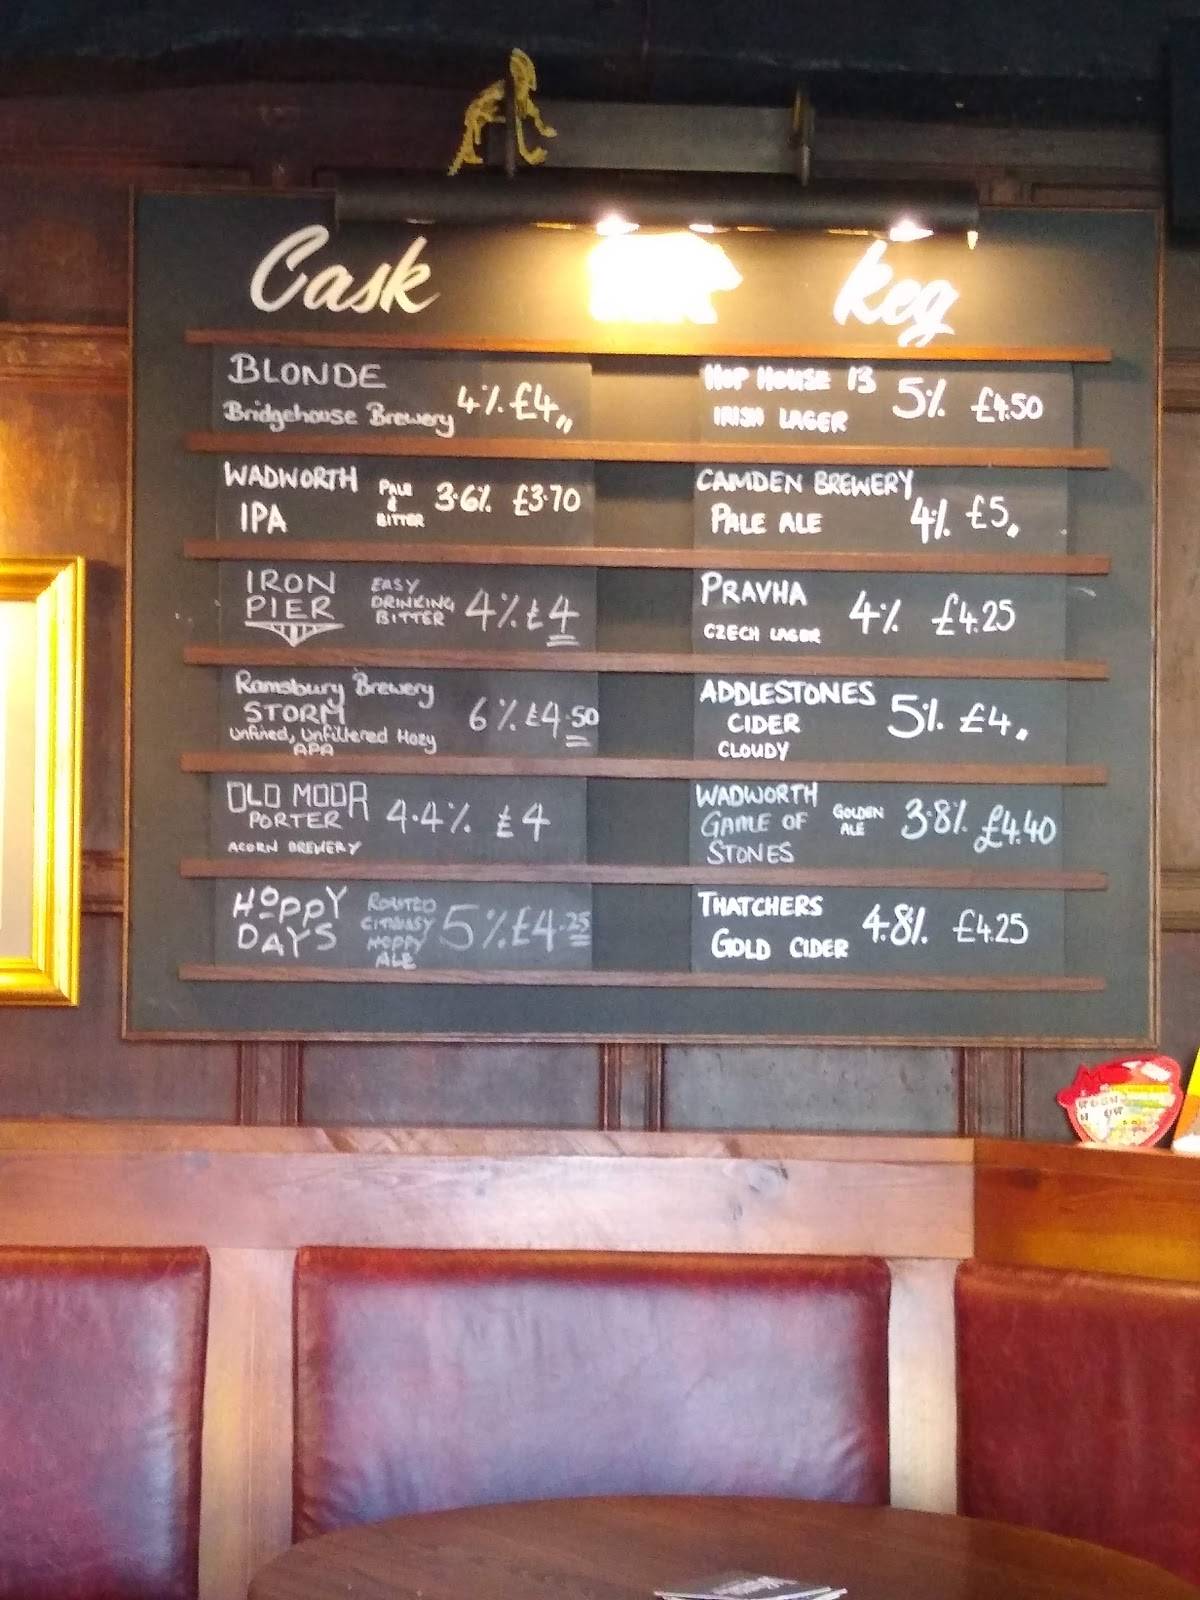 Cask
keg
BLONDE
Bridgehouse Brewery 4% £4,,
WADWORTH
IPA
PALE
&
BITTER
3.6% £3.70
IRON
PIER
EASY
DRINKING
BITTER
4% £4
Ramsbury Brewery
STORM
Unfined, Unfiltered Hazy
APA
6% £4.50
OLD MOOR
PORTER
ACORN BREWERY
4.4% £4
HOPPY
DAYS
HOPPY
ALE
5% £4.25
HOP HOUSE 13
IRISH LAGER
5% £4.50
CAMDEN BREWERY
PALE ALE
4% £5,
PRAVHA
CZECH LAGER
4% £4.25
ADDLESTONES
CIDER
CLOUDY
5% £4,
WADWORTH
GAME OF
STONES
GOLDEN
ALE
3.8% £4.40
THATCHERS
GOLD CIDER
4.8% £4.25